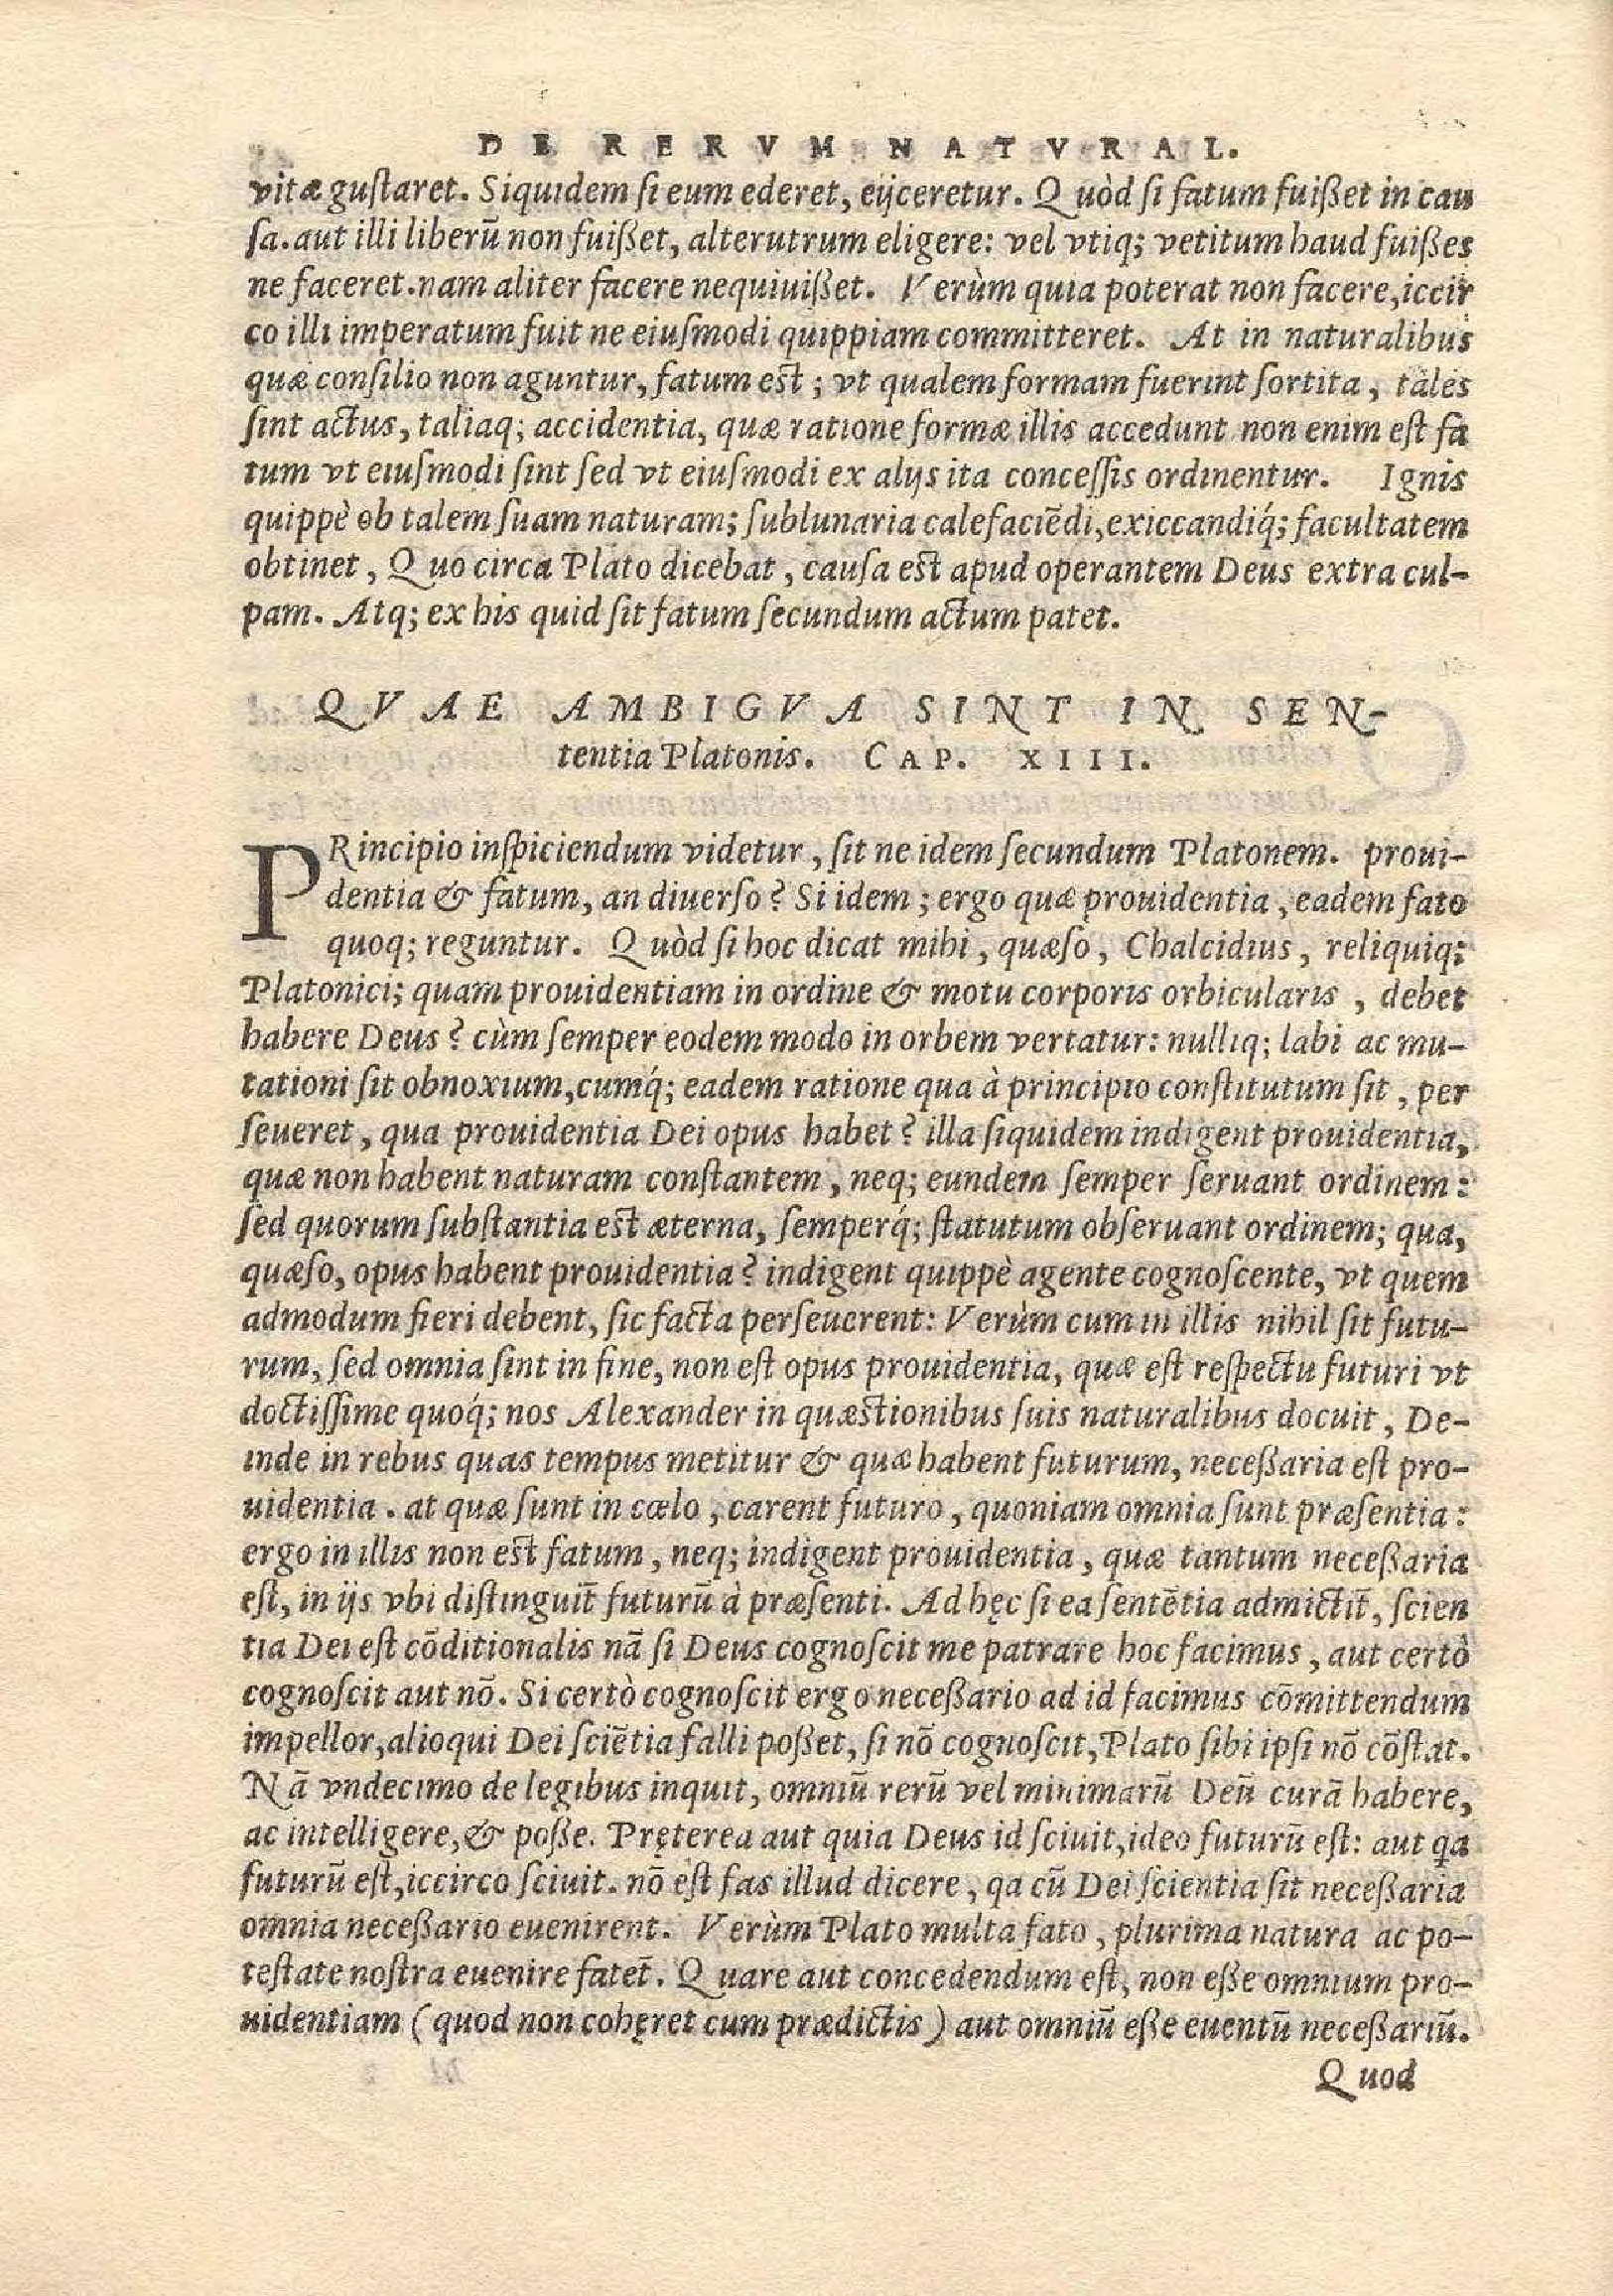 DE RERVM NATVRAL.
vitæ gustaret. Siquidem si eum ederet, eijceretur. Quòd si fatum fuißet in cau
sa. aut illi liberū non fuißet, alterutrum eligere: vel vtiq; vetitum haud fuißes
ne faceret. nam aliter facere nequiuißet. Verùm quia poterat non facere, iccir
co illi imperatum fuit ne eiusmodi quippiam committeret. At in naturalibus
quæ consilio non aguntur, fatum est; vt qualem formam fuerint sortita, tales
sint actus, taliaq; accidentia, quæ ratione formæ illis accedunt non enim est fa
tum vt eiusmodi sint sed vt eiusmodi ex alijs ita concessis ordinentur. Ignis
quippè ob talem suam naturam; sublunaria calefaciēdi, exiccandiq́; facultatem
obtinet, Quo circa Plato dicebat, causa est apud operantem Deus extra cul-
pam. Atq; ex his quid sit fatum secundum actum patet.
QVAE AMBIGVA SINT IN SEN-
tentia Platonis. CAP. XIII.
PRincipio inspiciendum videtur, sit ne idem secundum Platonem. proui-
dentia & fatum, an diuerso? Si idem; ergo quæ prouidentia, eadem fato
quoq; reguntur. Quòd si hoc dicat mihi, quæso, Chalcidius, reliquiq;
Platonici; quam prouidentiam in ordine & motu corporis orbicularis, debet
habere Deus? cùm semper eodem modo in orbem vertatur: nulliq; labi ac mu-
tationi sit obnoxium, cumq́; eadem ratione qua à principio constitutum sit, per
seueret, qua prouidentia Dei opus habet? illa siquidem indigent prouidentia,
quæ non habent naturam constantem, neq; eundem semper seruant ordinem:
sed quorum substantia est æterna, semperq́; statutum obseruant ordinem; qua,
quæso, opus habent prouidentia? indigent quippè agente cognoscente, vt quem
admodum fieri debent, sic facta perseuerent: Verùm cum in illis nihil sit futu-
rum, sed omnia sint in fine, non est opus prouidentia, quæ est respectu futuri vt
doctissime quoq́; nos Alexander in quæstionibus suis naturalibus docuit, De-
inde in rebus quas tempus metitur & quæ habent futurum, neceßaria est pro-
uidentia. at quæ sunt in cœlo, carent futuro, quoniam omnia sunt præsentia:
ergo in illis non est fatum, neq; indigent prouidentia, quæ tantum neceßaria
est, in ijs vbi distinguit̄ futurū à præsenti. Ad hęc si ea sentētia admictit̄, scien
tia Dei est cōditionalis nā si Deus cognoscit me patrare hoc facimus, aut certò
cognoscit aut nō. Si certò cognoscit ergo neceßario ad id facimus cōmittendum
impellor, alioqui Dei sciētia falli poßet, si nō cognoscit, Plato sibi ipsi nō cōstat.
Nā vndecimo de legibus inquit, omniū rerū vel minimarū Deū curā habere,
ac intelligere, & poße. Pręterea aut quia Deus id sciuit, ideo futurū est: aut qa
futurū est, iccirco sciuit. nō est fas illud dicere, qa cū Dei scientia sit neceßaria
omnia neceßario euenirent. Verùm Plato multa fato, plurima natura ac po-
testate nostra euenire fatet̄. Quare aut concedendum est, non eße omnium pro-
uidentiam (quod non cohęret cum prædictis) aut omniū eße euentū neceßariū.
Quod